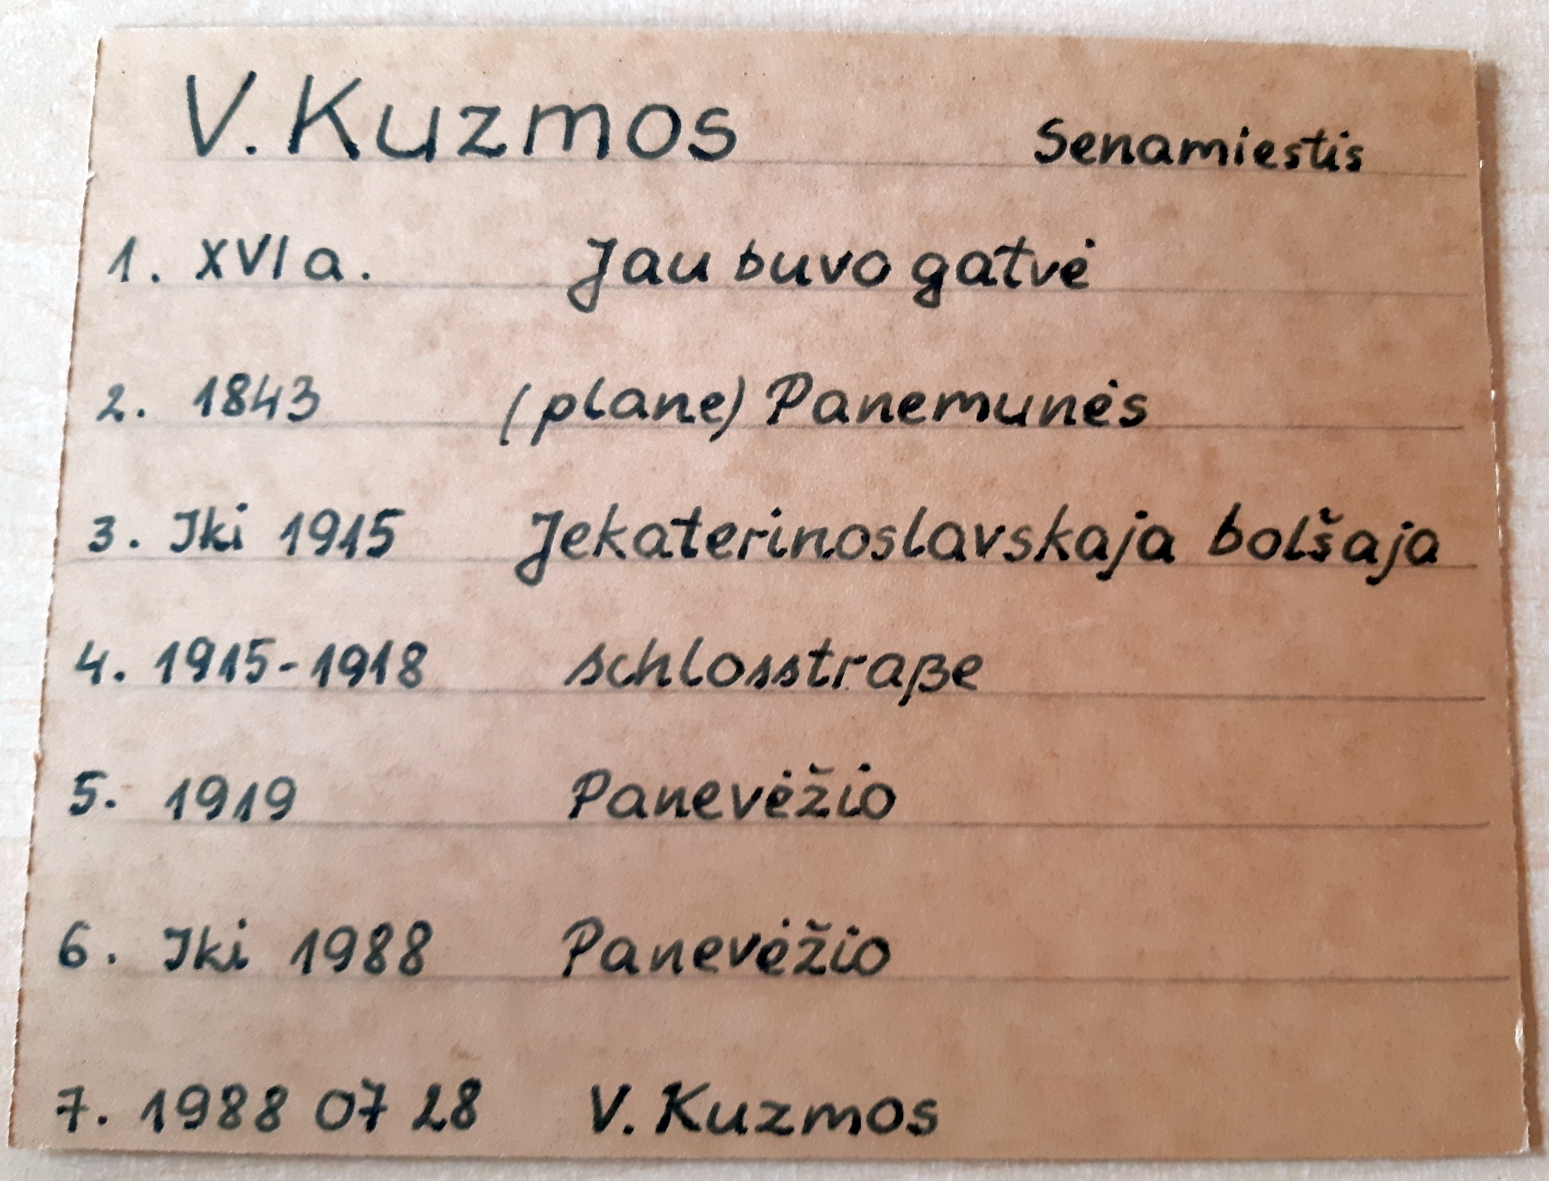 V. Kuzmos Senamiestis
1. XVI a. Jau buvo gatvė
2. 1843 (plane) Panemunės
3. Iki 1915 Jekaterinoslavskaja bolšaja
4. 1915-1918 schlosstraße
5. 1919 Panevėžio
6. Iki 1988 Panevėžio
7. 1988 07 28 V. Kuzmos